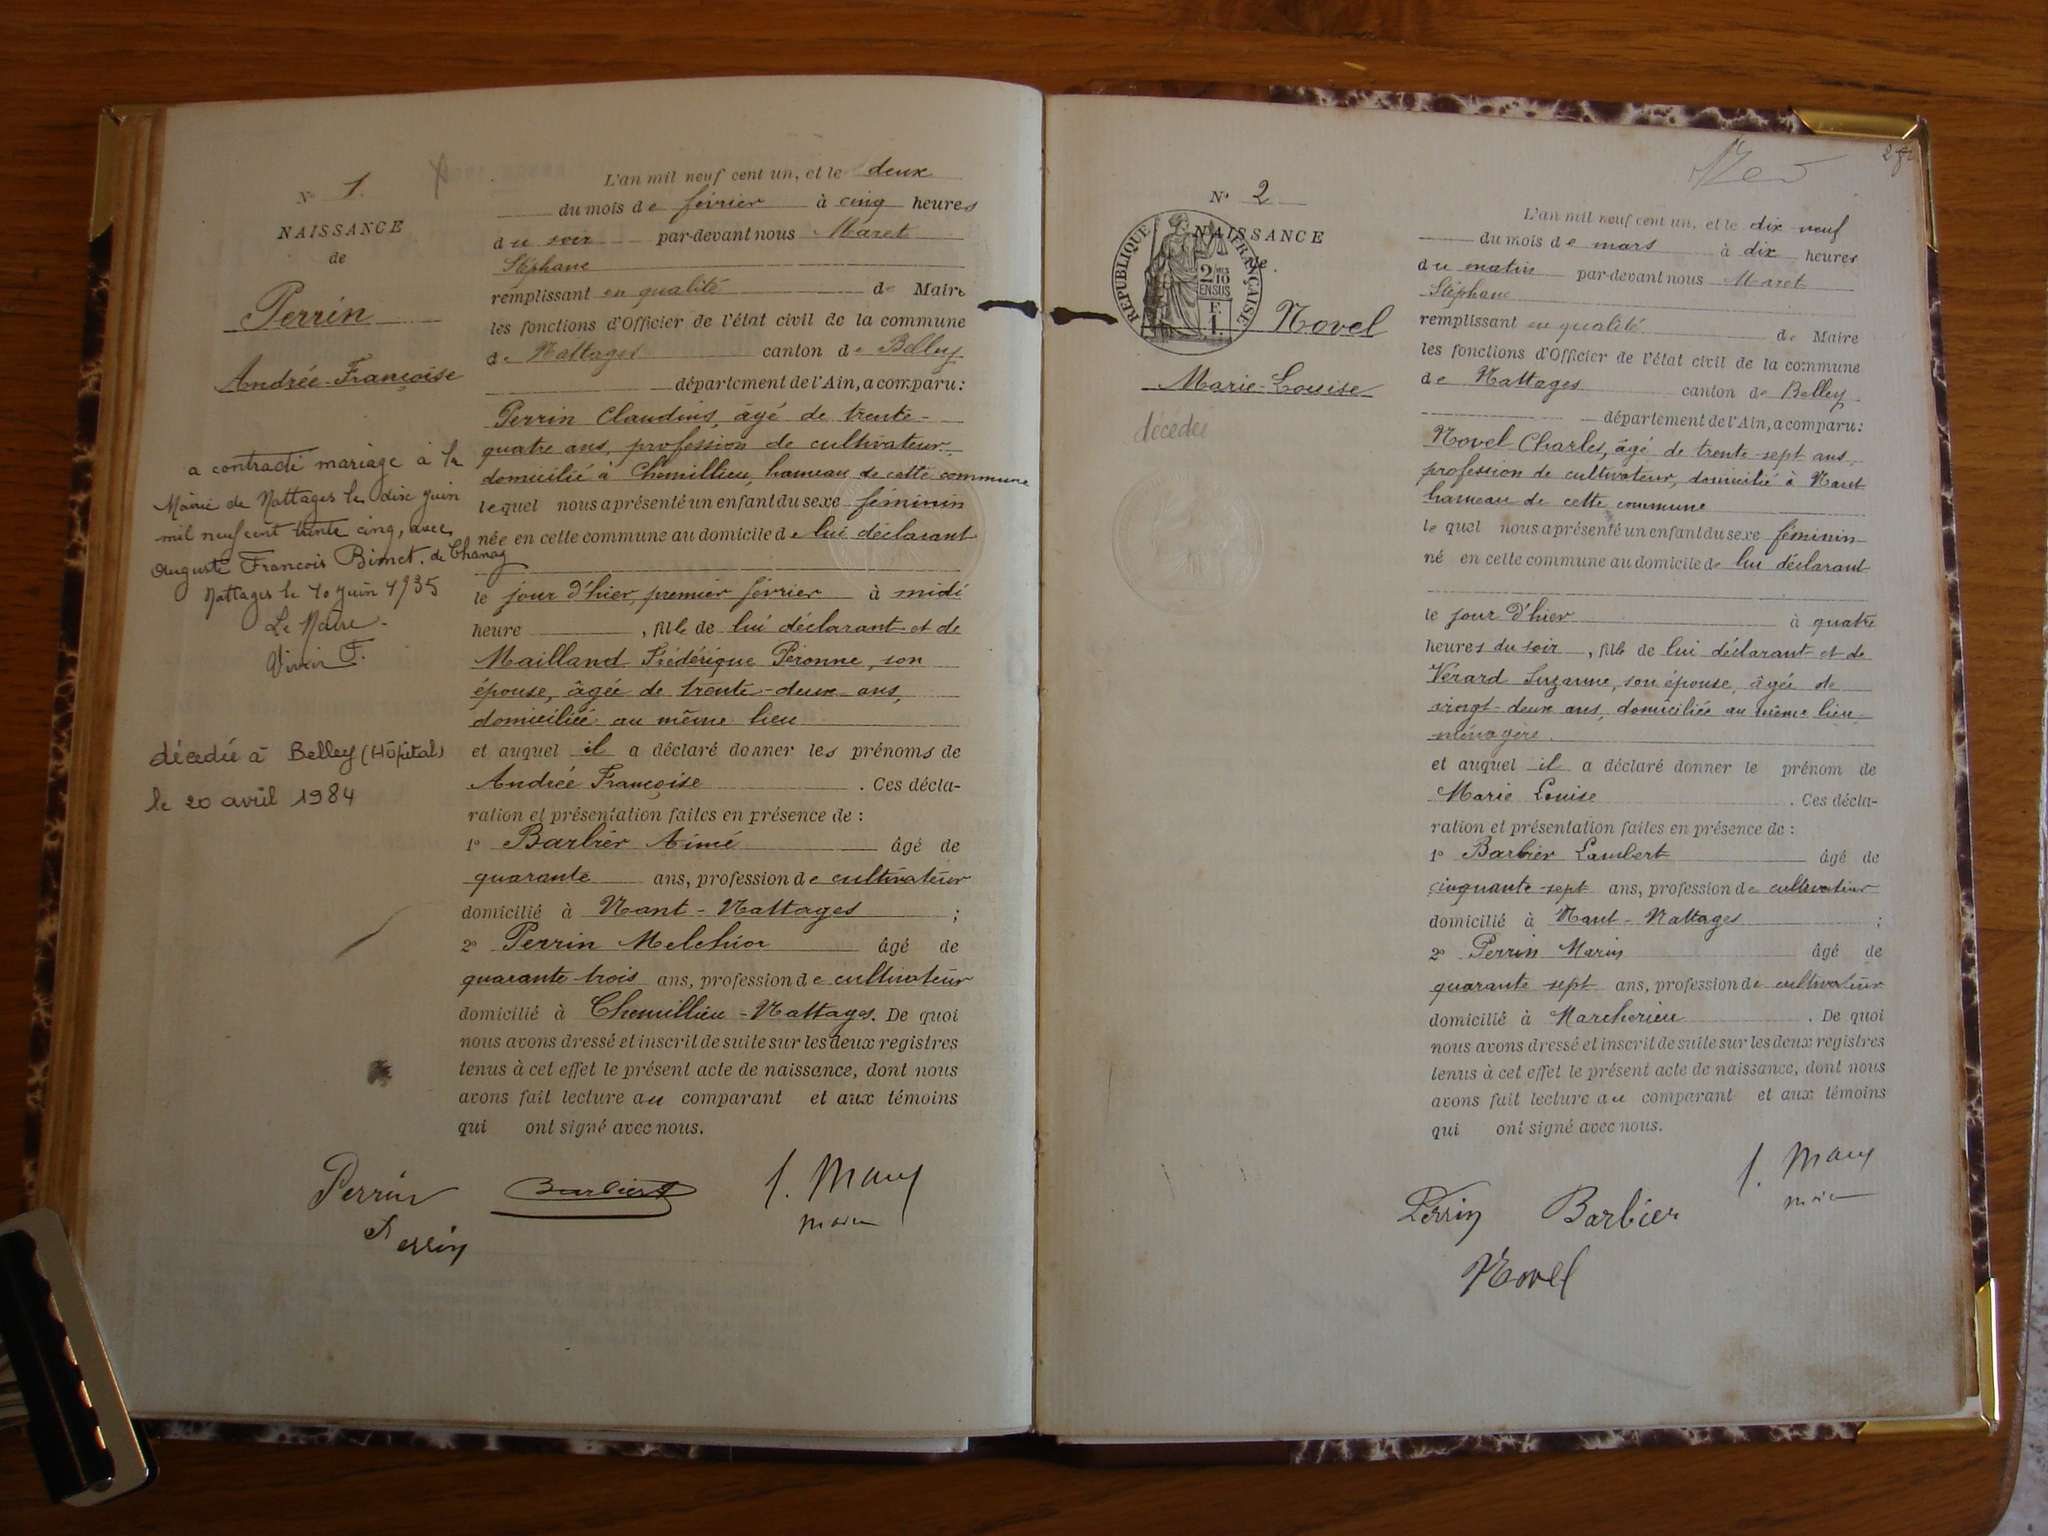 N° 1.
NAISSANCE
de
Perrin
Andrée-Françoise
a contracté mariage à la
Mairie de Nattages le dix juin
mil neuf cent trente cinq, avec
Auguste François Bimet. de Chanaz
Nattages le 10 juin 1935
Le Maire.
décédée à Belley (Hôpital)
le 20 avril 1984
L'an mil neuf cent un, et le deux
du mois de février à cinq heures
du soir par-devant nous Maret
Stéphane
remplissant en qualité de Maire
les fonctions d'Officier de l'état civil de la commune
de Nattages canton de Belley
département de l'Ain, a comparu:
Perrin Claudius, âgé de trente-
quatre ans, profession de cultivateur,
domicilié à Chemillieu, hameau de cette commune
lequel nous a présenté un enfant du sexe féminin
née en cette commune au domicile de lui déclarant
le jour d'hier, premier février à midi
heure , fille de lui déclarant et de
Mailland Frédérique Péronne, son
épouse, âgée de trente-deux ans,
domiciliée au même lieu
et auquel il a déclaré donner les prénoms de
Andrée Françoise . Ces décla-
ration et présentation faites en présence de :
1° Barbier Aimé âgé de
quarante ans, profession de cultivateur
domicilié à Nant-Nattages ;
2° Perrin Melchior âgé de
quarante-trois ans, profession de cultivateur
domicilié à Chemillieu-Nattages. De quoi
nous avons dressé et inscrit de suite sur les deux registres
tenus à cet effet le présent acte de naissance, dont nous
avons fait lecture au comparant et aux témoins
qui ont signé avec nous.
Perrin Barbier
Perrin
N° 2
NAISSANCE
de
RÉPUBLIQUE FRANÇAISE
2/10 EN SUS
Novel
Marie-Louise
décédée
L'an mil neuf cent un, et le dix-neuf
du mois de mars à dix heures
du matin par-devant nous Maret
Stéphane
remplissant en qualité de Maire
les fonctions d'Officier de l'état civil de la commune
de Nattages canton de Belley
département de l'Ain, a comparu:
Novel Charles, âgé de trente-sept ans,
profession de cultivateur, domicilié à Nant
hameau de cette commune
lequel nous a présenté un enfant du sexe féminin
né en cette commune au domicile de lui déclarant
le jour d'hier à quatre
heures du soir , fille de lui déclarant et de
Vérard Suzanne, son épouse, âgée de
vingt-deux ans, domiciliée au même lieu
ménagère.
et auquel il a déclaré donner le prénom de
Marie Louise . Ces décla-
ration et présentation faites en présence de :
1° Barbier Lambert âgé de
cinquante-sept ans, profession de cultivateur
domicilié à Nant-Nattages ;
2° Perrin Marin âgé de
quarante-sept ans, profession de cultivateur
domicilié à . De quoi
nous avons dressé et inscrit de suite sur les deux registres
tenus à cet effet le présent acte de naissance, dont nous
avons fait lecture au comparant et aux témoins
qui ont signé avec nous.
Perrin Barbier
Novel